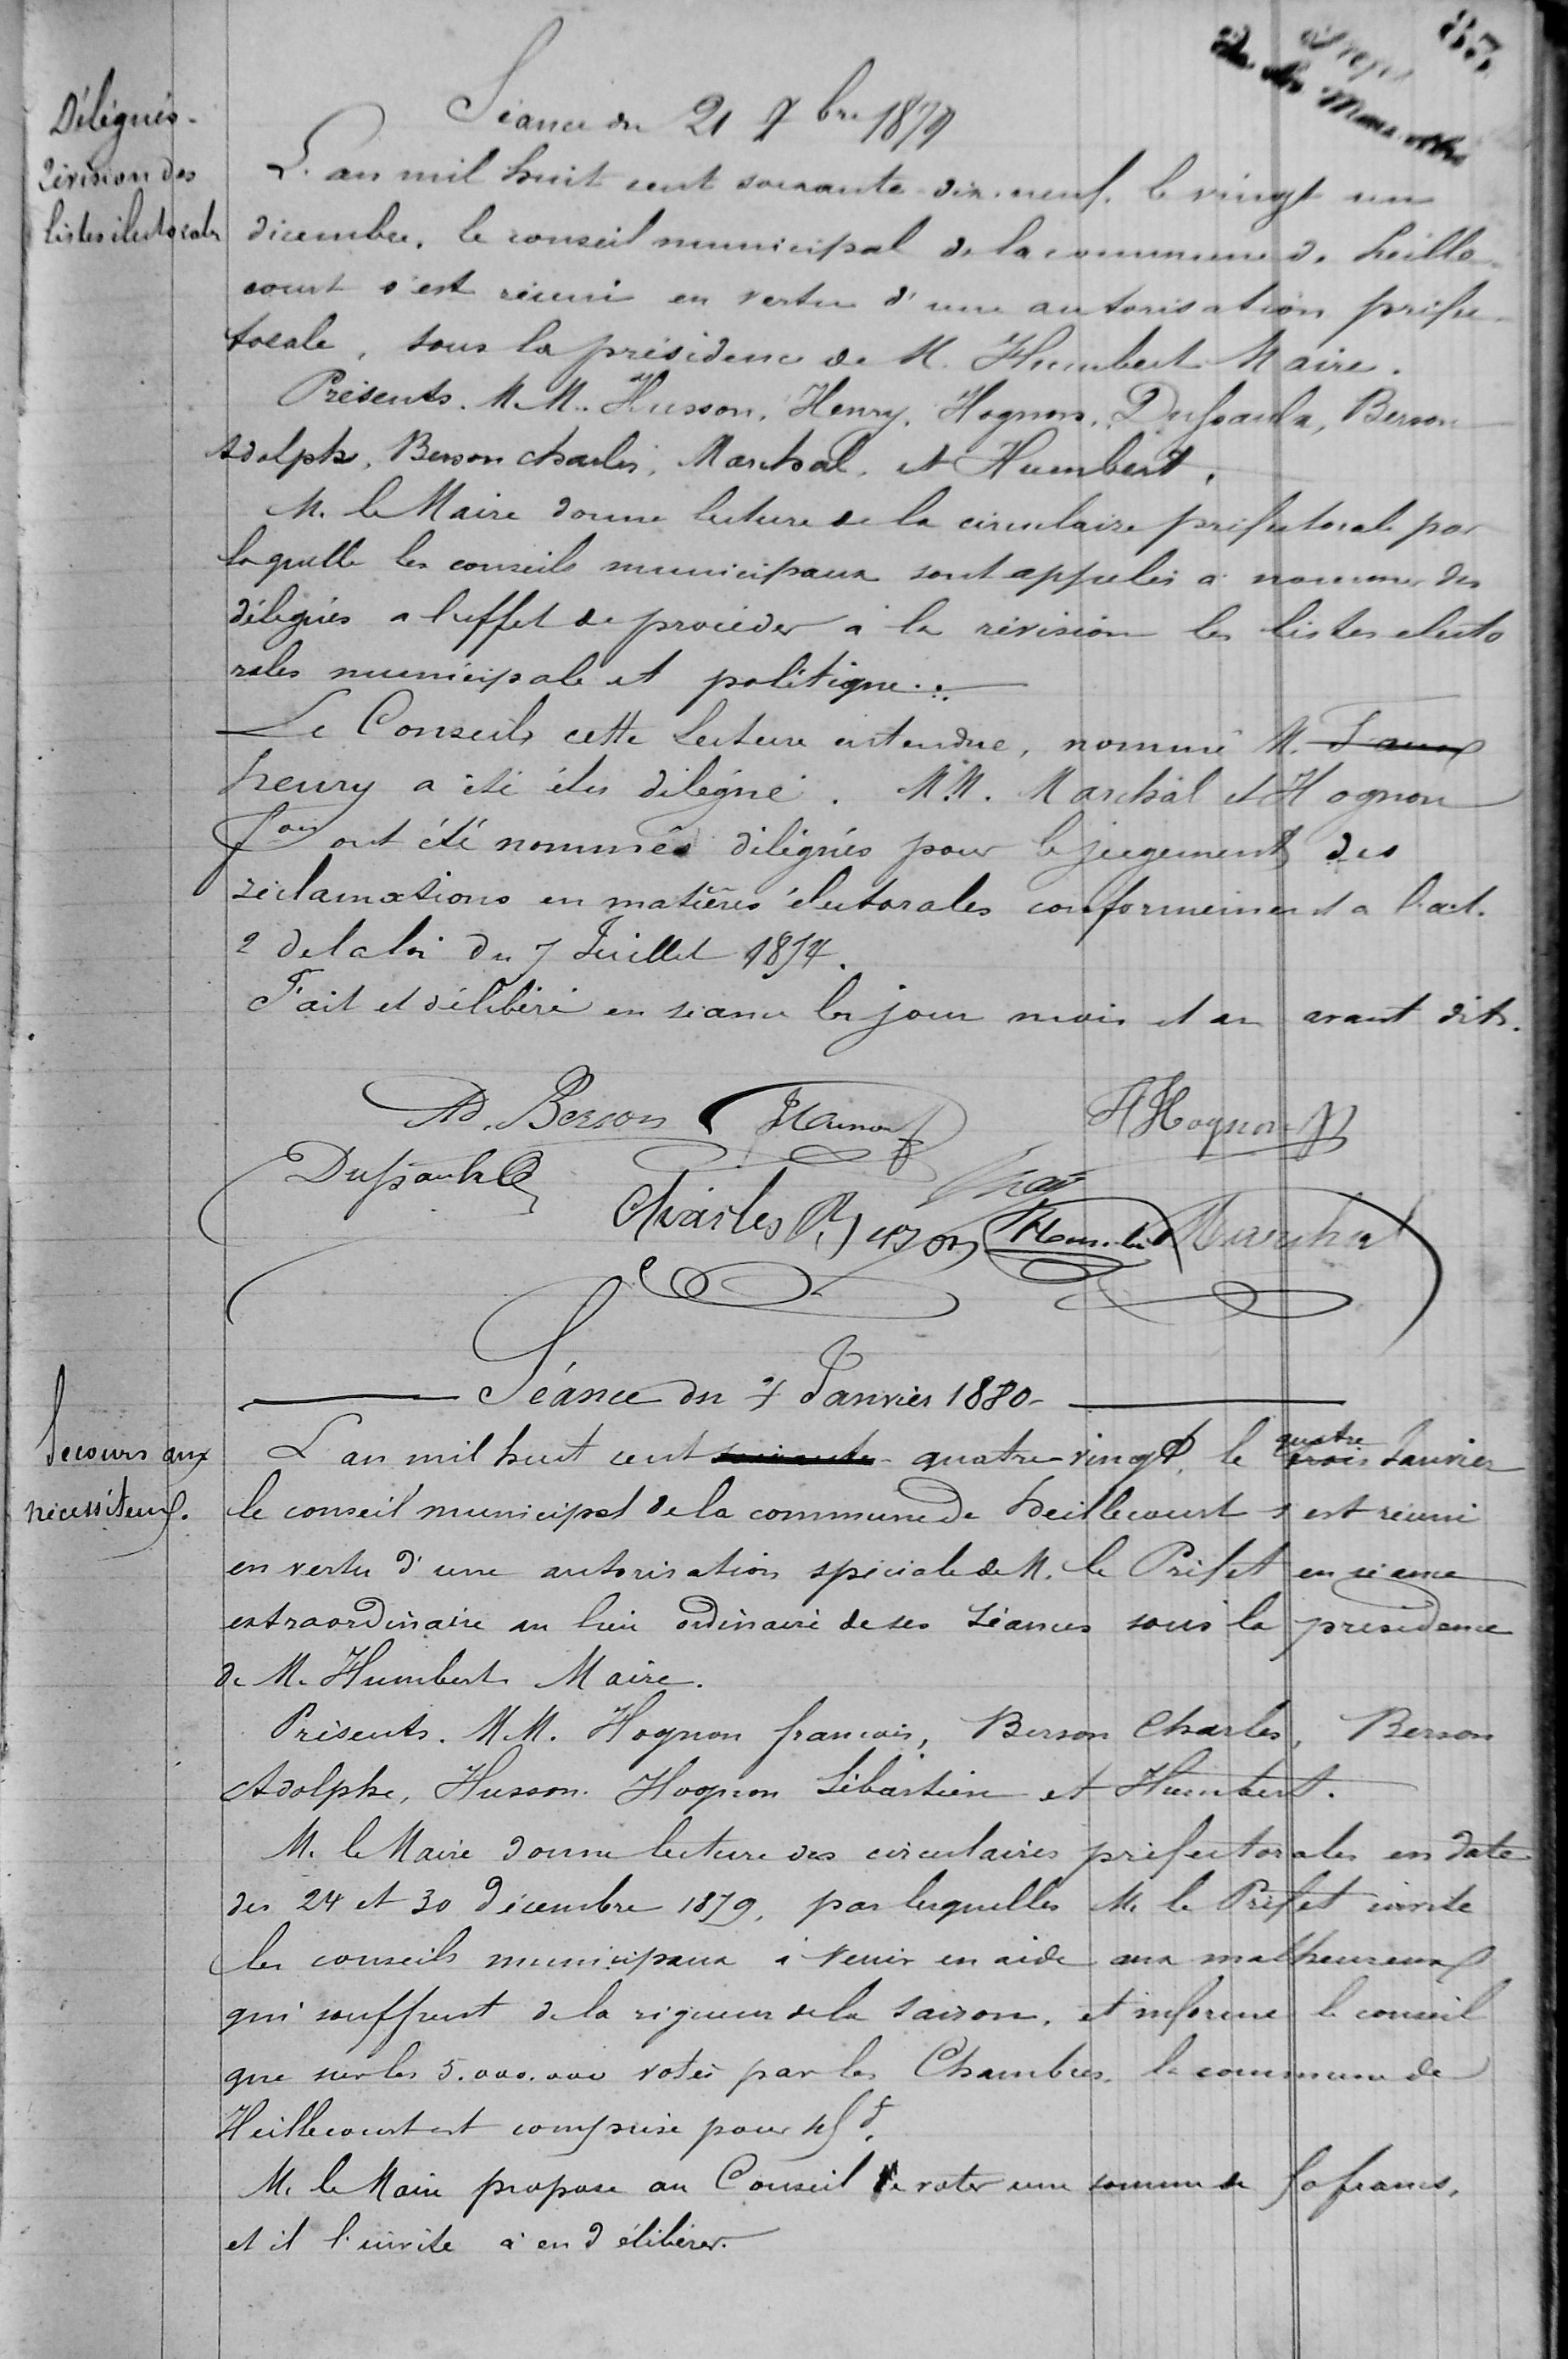 83
Délégués.
Révision des
listes électorales
Séance du 21 Xbre 1879
L'an mil huit cent soixante-dix-neuf, le vingt un
décembre, le conseil municipal de la commune de heille-
court s'est réuni en vertu d'une autorisation préfec-
torale, sous la présidence de M. Humbert Maire.
Présents. M.M. Husson, Henry, Hognon, Dussaulx, Berson
Adolphe, Berson charles, Marchal, et Humbert.
M. le Maire donne lecture de la circulaire préfectorale par
laquelle les conseils municipaux sont appelés a nommer des
délégués a l'effet de procéder à la révision les listes electo
rales municipale et politique.
Le Conseil, cette lecture entendue, nommé M.
henry a été élu délégué. M.M. Marchal et Hognon
fois ont été nommés délégués pour le jugement des
réclamations en matières électorales conformément a l'art.
2 de la loi du 7 Juillet 1874.
Fait et délibéré en séance les jour mois et an avant dits.
Ad. Berson HHognon
Dussaulx
Charles Berson Humbert Marchal
Séance du 4 Janvier 1880-
Secours aux
nécessiteux.
L'an mil huit cent soixante- quatre-vingt, le trois quatre Janvier
le conseil municipal de la commune de heillecourt s'est réuni
en vertu d'une autorisation spéciale de M. le Préfet en séance
extraordinaire au lieu ordinaire de ses séances sous la présidence
de M. Humbert Maire.
Présents. M.M. Hognon francois, Berson Charles, Berson
Adolphe, Husson. Hognon Sébastien et Humbert.
M. le Maire donne lecture des circulaires préfectorales en date
des 24 et 30 Décembre 1879, par lesquelles M. le Préfet invite
les conseils municipaux à venir en aide aux malheureux
qui souffrent de la rigueur de la saison, et informe le conseil
que sur les 5.000.000 votés par les Chambres, la commune de
Heillecourt est comprise pour
M. le Maire propose au Conseil de voter une somme de 50 francs,
et il l'invite à en délibérer.